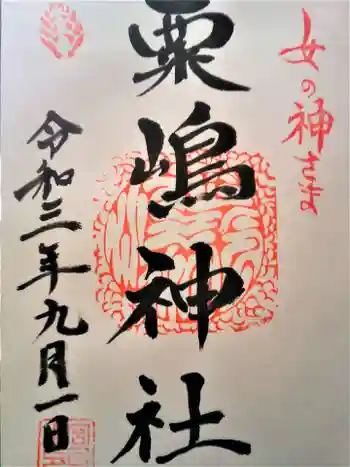 女の神さま
粟嶋神社
令和三年九月一日